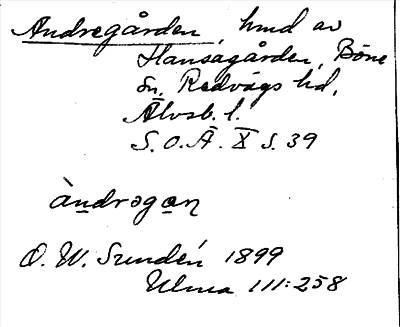 Andregården, hmd av
Hansagården, Böne
sn, Redvägs hd,
Älvsb. l.
S.O.Ä. X s. 39
àndrəgaɳ
O. W. Sundén 1899
Ulma 111:258